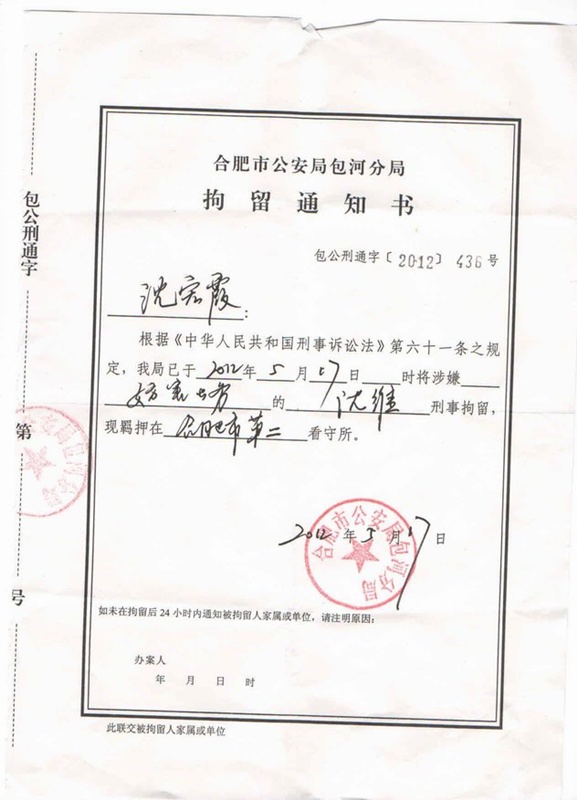 合肥市公安局包河分局
拘留通知书
包公刑通字〔2012〕436号
沈宏霞：
根据《中华人民共和国刑事诉讼法》第六十一条之规
定，我局已于2012年5月17日 时将涉嫌
妨害公务的 沈维 刑事拘留，
现羁押在合肥市第二看守所。
2012年5月17日
合肥市公安局包河分局
如未在拘留后24小时内通知被拘留人家属或单位，请注明原因：
办案人
年 月 日 时
此联交被拘留人家属或单位
包公刑通字
第
号
安局包河分局